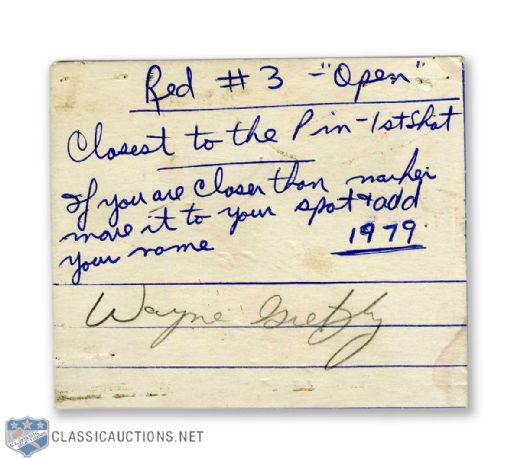 Red # 3 - "Open"
Closest to the Pin - 1st Shot
If you are closer than marker
move it to your spot + add
your name
1979
Wayne Gretzky
CLASSICAUCTIONS.NET